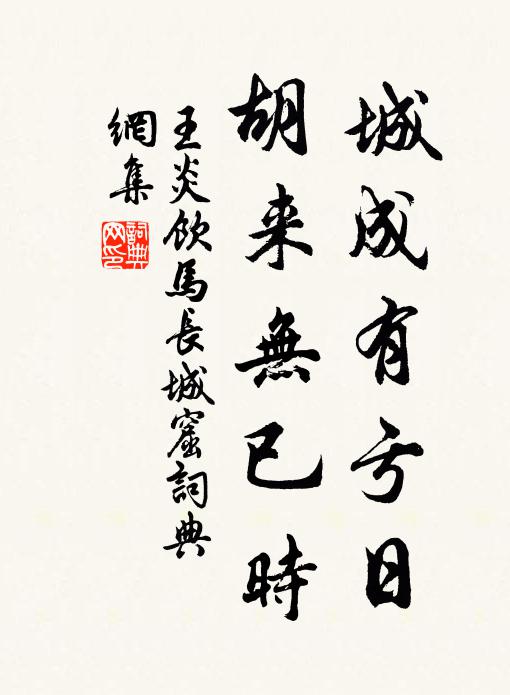 城成有亏日
胡来無已時
王炎飲馬長城窟詞典
網集
詞典
网印